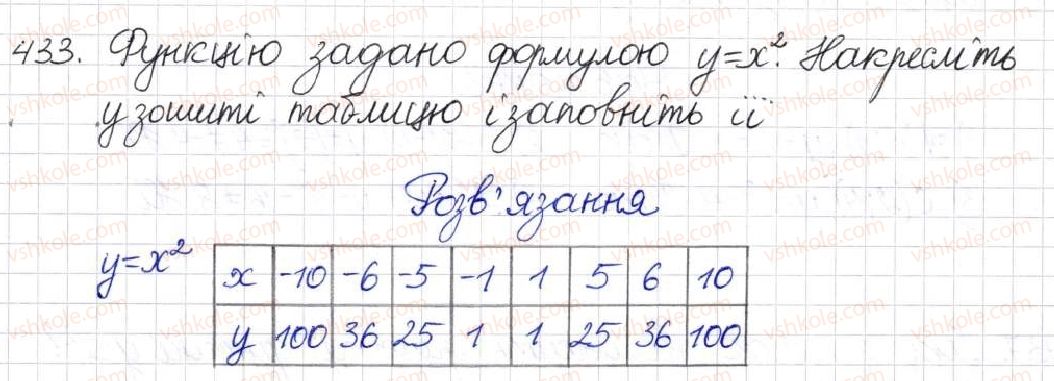 433. Функцію задано формулою y=x². Накресліть
у зошиті таблицю і заповніть її
Розв'язання
y=x²
x -10 -6 -5 -1 1 5 6 10
y 100 36 25 1 1 25 36 100